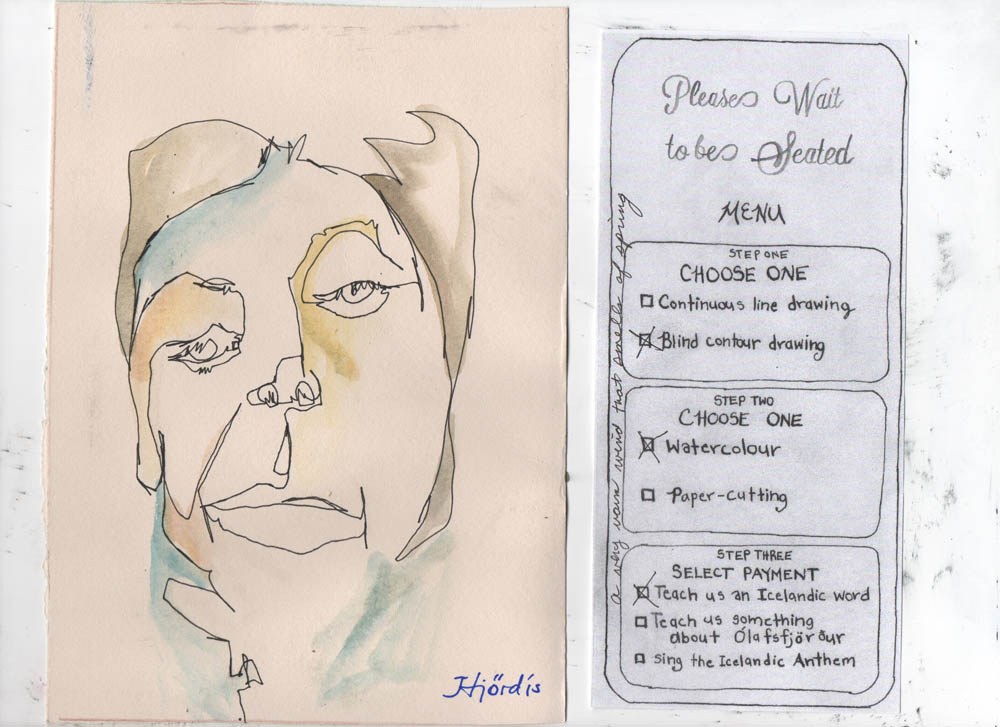 Hjördís
Please Wait
to be Seated
MENU
STEP ONE
CHOOSE ONE
Continuous line drawing
Blind contour drawing
STEP TWO
CHOOSE ONE
Watercolour
Paper-cutting
STEP THREE
SELECT PAYMENT
Teach us an Icelandic word
Teach us something
about Ólafsfjörður
Sing the Icelandic Anthem
a very warm wind that smells of spring